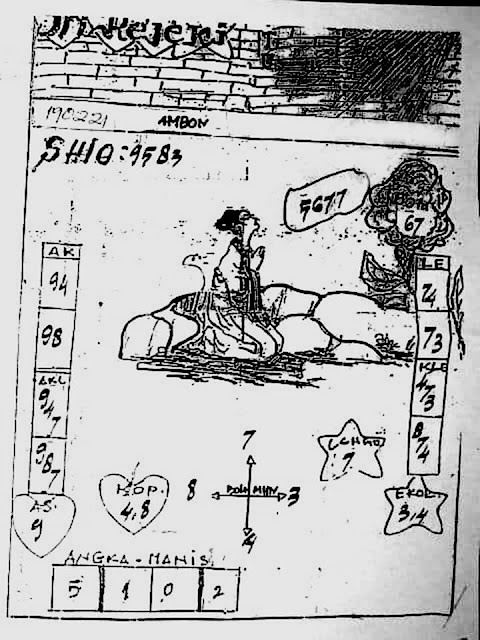 Sri Rejeki
190221
AMBON
SHIO: 9583
5677
67
AK
94
98
AKL
947
987
AS.
9
LE
74
73
KLE
473
874
EKOR
3,4
7
8
3
4
KOP.
4,8
9
ANGKA-MANIS
5 1 0 2